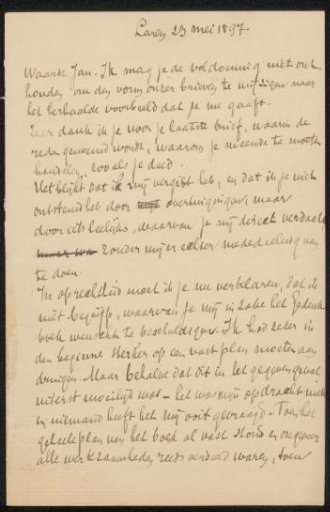 Laren 23 mei 1897.
Waarde Jan. Ik mag je de voldoening niet ont
houden om den vorm onzer brieven te wijzigen naar
het herhaalde voorbeeld dat je me gaaft.
Zeer dank ik je voor je laatste brief, waarin de
reden genoemd wordt, waarom je meende te moeten
handelen, zooals je deed.
Het blijkt dat ik mij vergist heb, en dat ik je niet
ontstemd heb door overtuigingen, maar
door iets leelijks, waarvan je mij direct verdacht
zonder mij er echter mededeeling van
te doen.
In oprechtheid moet ik je nu verklaren, dat ik
niet begrijp, waarvan je mij in zake het Gedenk
boek wenscht te beschuldigen. Ik had zeker in
den beginne sterker op een vast plan moeten aan
dringen. Maar behalve dat dit in het gegeven geval
uiterst moeilijk was – het was mijn opdracht niet
en niemand heeft het mij ooit gevraagd – Toen het
geheele plan van het boek al vast stond en ongeveer
alle werkzaamheden reeds verdeeld waren, toen